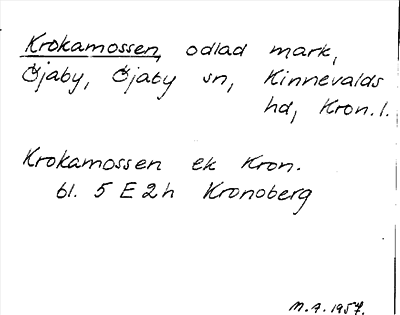 Krokamossen, odlad mark,
Öjaby, Öjaby sn, Kinnevalds
hd, Kron. l.
Krokamossen ek Kron.
bl. 5 E 2 h Kronoberg
M.A. 1957.